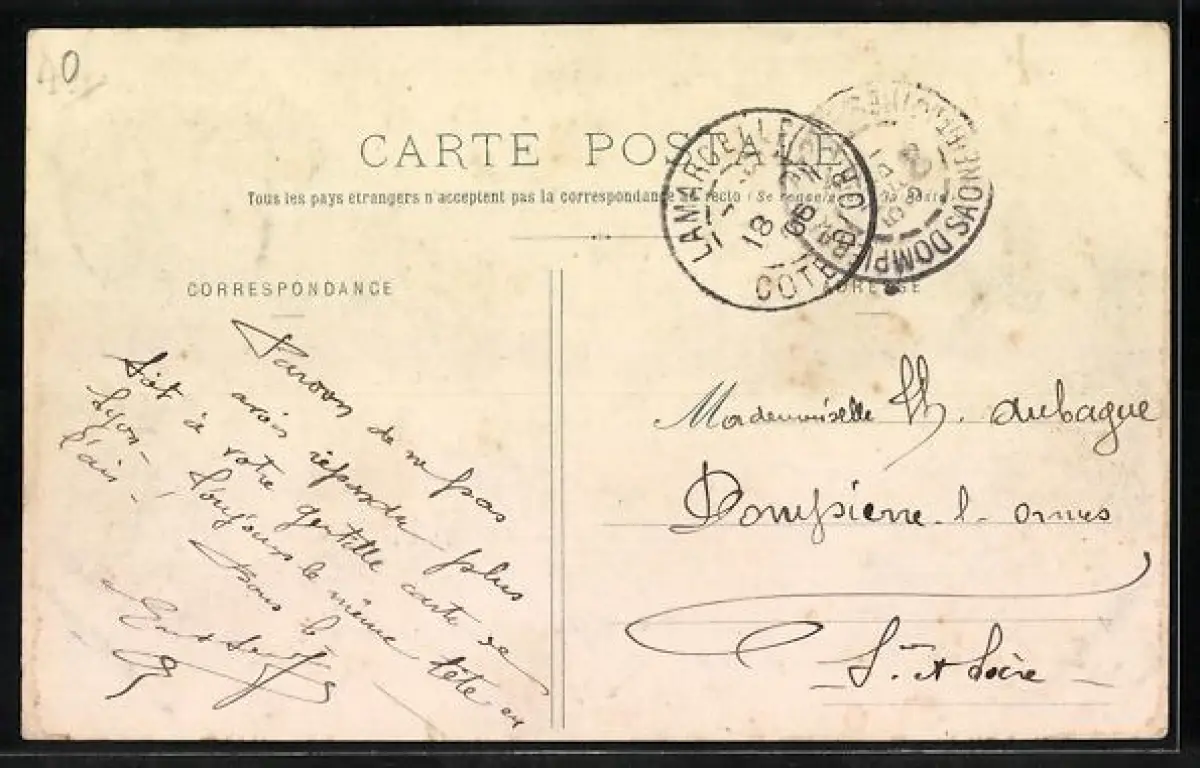 CARTE POSTALE
Tous les pays etrangers n'acceptent pas la correspondance au recto (Se renseigner à la Poste)
LAMARGELLE
18
06
COTE-D'OR
DOMPI
SAONE-ET-LOIRE
CORRESPONDANCE
ADRESSE
Pardon de ne pas
avoir répondu plus
tôt à votre gentille carte de
Lyon - Toujours le même tête en
l'air -
Bons
Mademoiselle Th. Aubague
Dompierre-l-ormes
S. et Loire